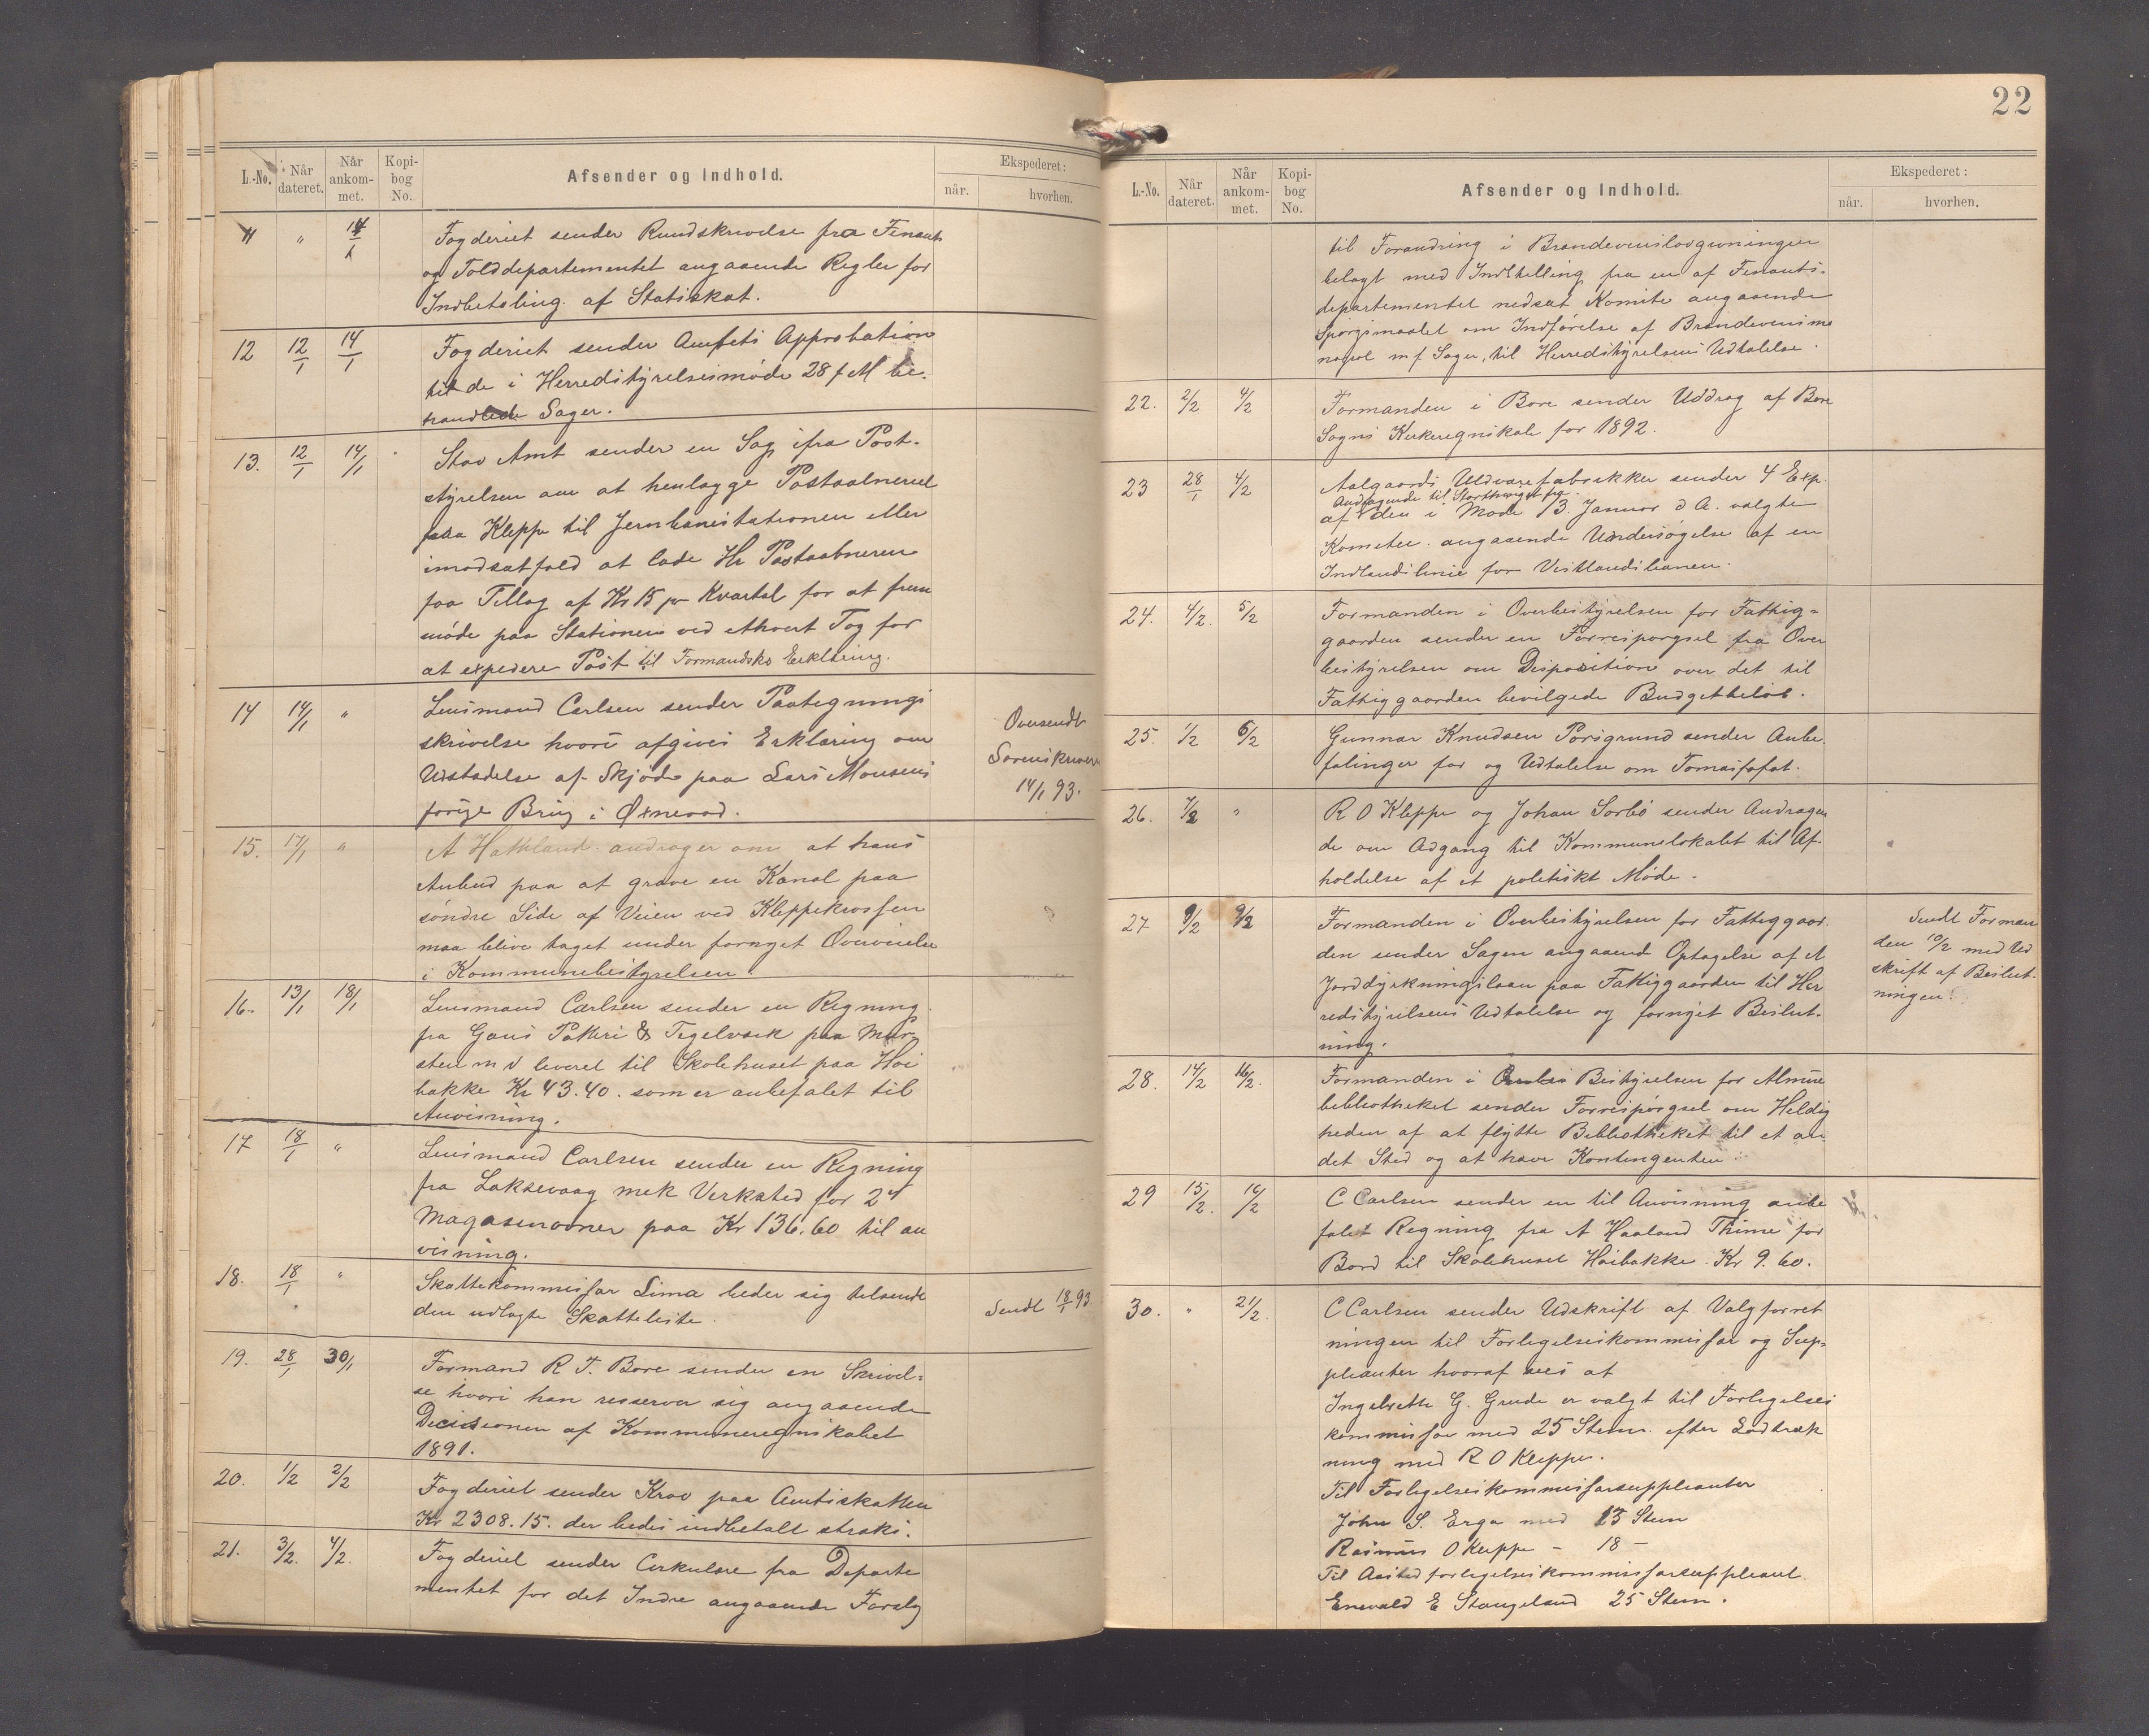 L.-No. Når dateret. Når ankom- met. Kopi- bog No. Afsender og Indhold. Ekspederet: når. hvorhen.
11 " 14/1 Fogderiet sender Rundskrivelse fra Finants
og Tolddepartementet angaaende Regler for
Indbetaling af Statsskat.
12 12/1 14/1 Fogderiet sender Amtets Approbation
til de i Herredstyrelsesmøde 28 f M be-
handlede Sager.
13. 12/1 14/1 Stav Amt sender en Sag ifra Post-
styrelsen om at henlægge Postaabneriet
paa Kleppe til Jernbanestationen eller
imodsatfald at lade Hr Postaabneren
faa Tillæg af Kr 15 pr Kvartal for at frem
møde paa Stationen ved ethvert Tog for
at expedere Post til Formandsks Erklæring.
14 14/1 " Lensmand Carlsen sender Paategnings
skrivelse hvori afgives Erklæring om
Udstedelse af Skjøde paa Lars Monsens
forrige Brug i Øxnevad.
Oversendt
Sorenskriveren
14/1 93.
15. 17/1 " A Hatteland andrager om at hans
Anbud paa at grave en Kanal paa
søndre Side af Veien ved Kleppekrossen
maa blive taget under fornyet Overveielse
i Kommunebestyrelsen.
16. 13/1 18/1 Lensmand Carlsen sender en Regning
fra Gans Potteri & Tegelværk paa Mur-
sten m v leveret til Skolehuset paa Høi
bakke Kr 43.40. som er anbefalet til
Anvisning.
17 18/1 " Lensmand Carlsen sender en Regning
fra Laksevaag mek Verksted for 2
Magasinovner paa Kr 136.60 til an
visning.
18. 18/1 " Skattekommissær Lima beder sig tilsendt
den udlagte Skatteliste.
Sendt 18/1 93.
19. 28/1 30/1 Formand R T. Bore sender en Skrivel-
se hvori han reserver sig angaaende
Decisionen af Kommuneregnskabet
1891.
20. 1/2 2/2 Fogderiet sender Krav paa Amtsskatten
Kr 2308.15. der bedes indbetalt straks.
21. 3/2. 4/2. Fogderiet sender Cirkulære fra Departe
mentet for det Indre angaaende Forslag
22
L.-No. Når dateret. Når ankom- met. Kopi- bog No. Afsender og Indhold. Ekspederet: når. hvorhen.
til Forandring i Brændevinslovgivningen
belagt med Indstilling fra en af Finants-
departementet nedsat Komite angaaende
Spørgsmaalet om Indførelse af Brændevinsmo
nopol m f Sager, til Herredstyrelsens Udtalelse.
22. 2/2 4/2 Formanden i Bore sender Uddrag af Bore
Sogns Kirkeregnskab for 1892.
23 28/1 4/2 Aalgaards Uldvarefabrikker sender 4 Exp.
Andragende til Storthinget fra
af den i Møde 13. Januar d A. valgte
Komitee angaaende Undersøgelse af en
Indlandslinie for Vestlandsbanen.
24. 4/2. 5/2 Formanden i Overbestyrelsen for Fattig-
gaarden sender en Forrespørgsel fra Over
bestyrelsen om Disposition over det til
Fattiggaarden bevilgede Budgetbeløb.
25. 1/2 6/2 Gunnar Knudsen Porsgrund sender Anbe
falinger for og Udtalelse om Tomasfosfat.
26. 7/2 " R O Kleppe og Johan Sørbø sender Andragen
de om Adgang til Kommunelokalet til Af-
holdelse af et politiskt Møde.
27 9/2 9/2 Formanden i Overbestyrelsen for Fattiggaar
den sender Sagen angaaende Optagelse af et
Jorddyrkningslaan paa Fattiggaarden til Her
redstyrelsens Udtalelse og fornyet Beslut-
ning.
Sendt Forman
den 10/2 med Ud
skrift af Beslut-
ningen.
28. 14/2 16/2. Formanden i Bestyrelsen for Almue
bibliotheket sender Forrespørgsel om Heldig
heden af at flytte Bibliotheket til et an
det Sted og at hæve Kontingenten
29 15/2. 16/2 C Carlsen sender en til Anvisning anbe
falet Regning fra A Haaland Thime for
Bord til Skolehuset Høibakke. Kr 9.60.
30. " 21/2. C Carlsen sender Udskrift af Valgforret
ningen til Forligelseskommissær og Sup-
pleanter hvoraf sees at
Ingebrette G. Grude er valgt til Forligelses
kommissær med 25 Stem. efter Lodtræk
ning med R O Kleppe.
Til Forligelseskommissærsuppleanter
John S. Erga med 13 Stem
Rasmus O Kleppe - 18 -
Til Aastedforligelseskommissærsuppleant
Enevald E Stangeland 25 Stem.